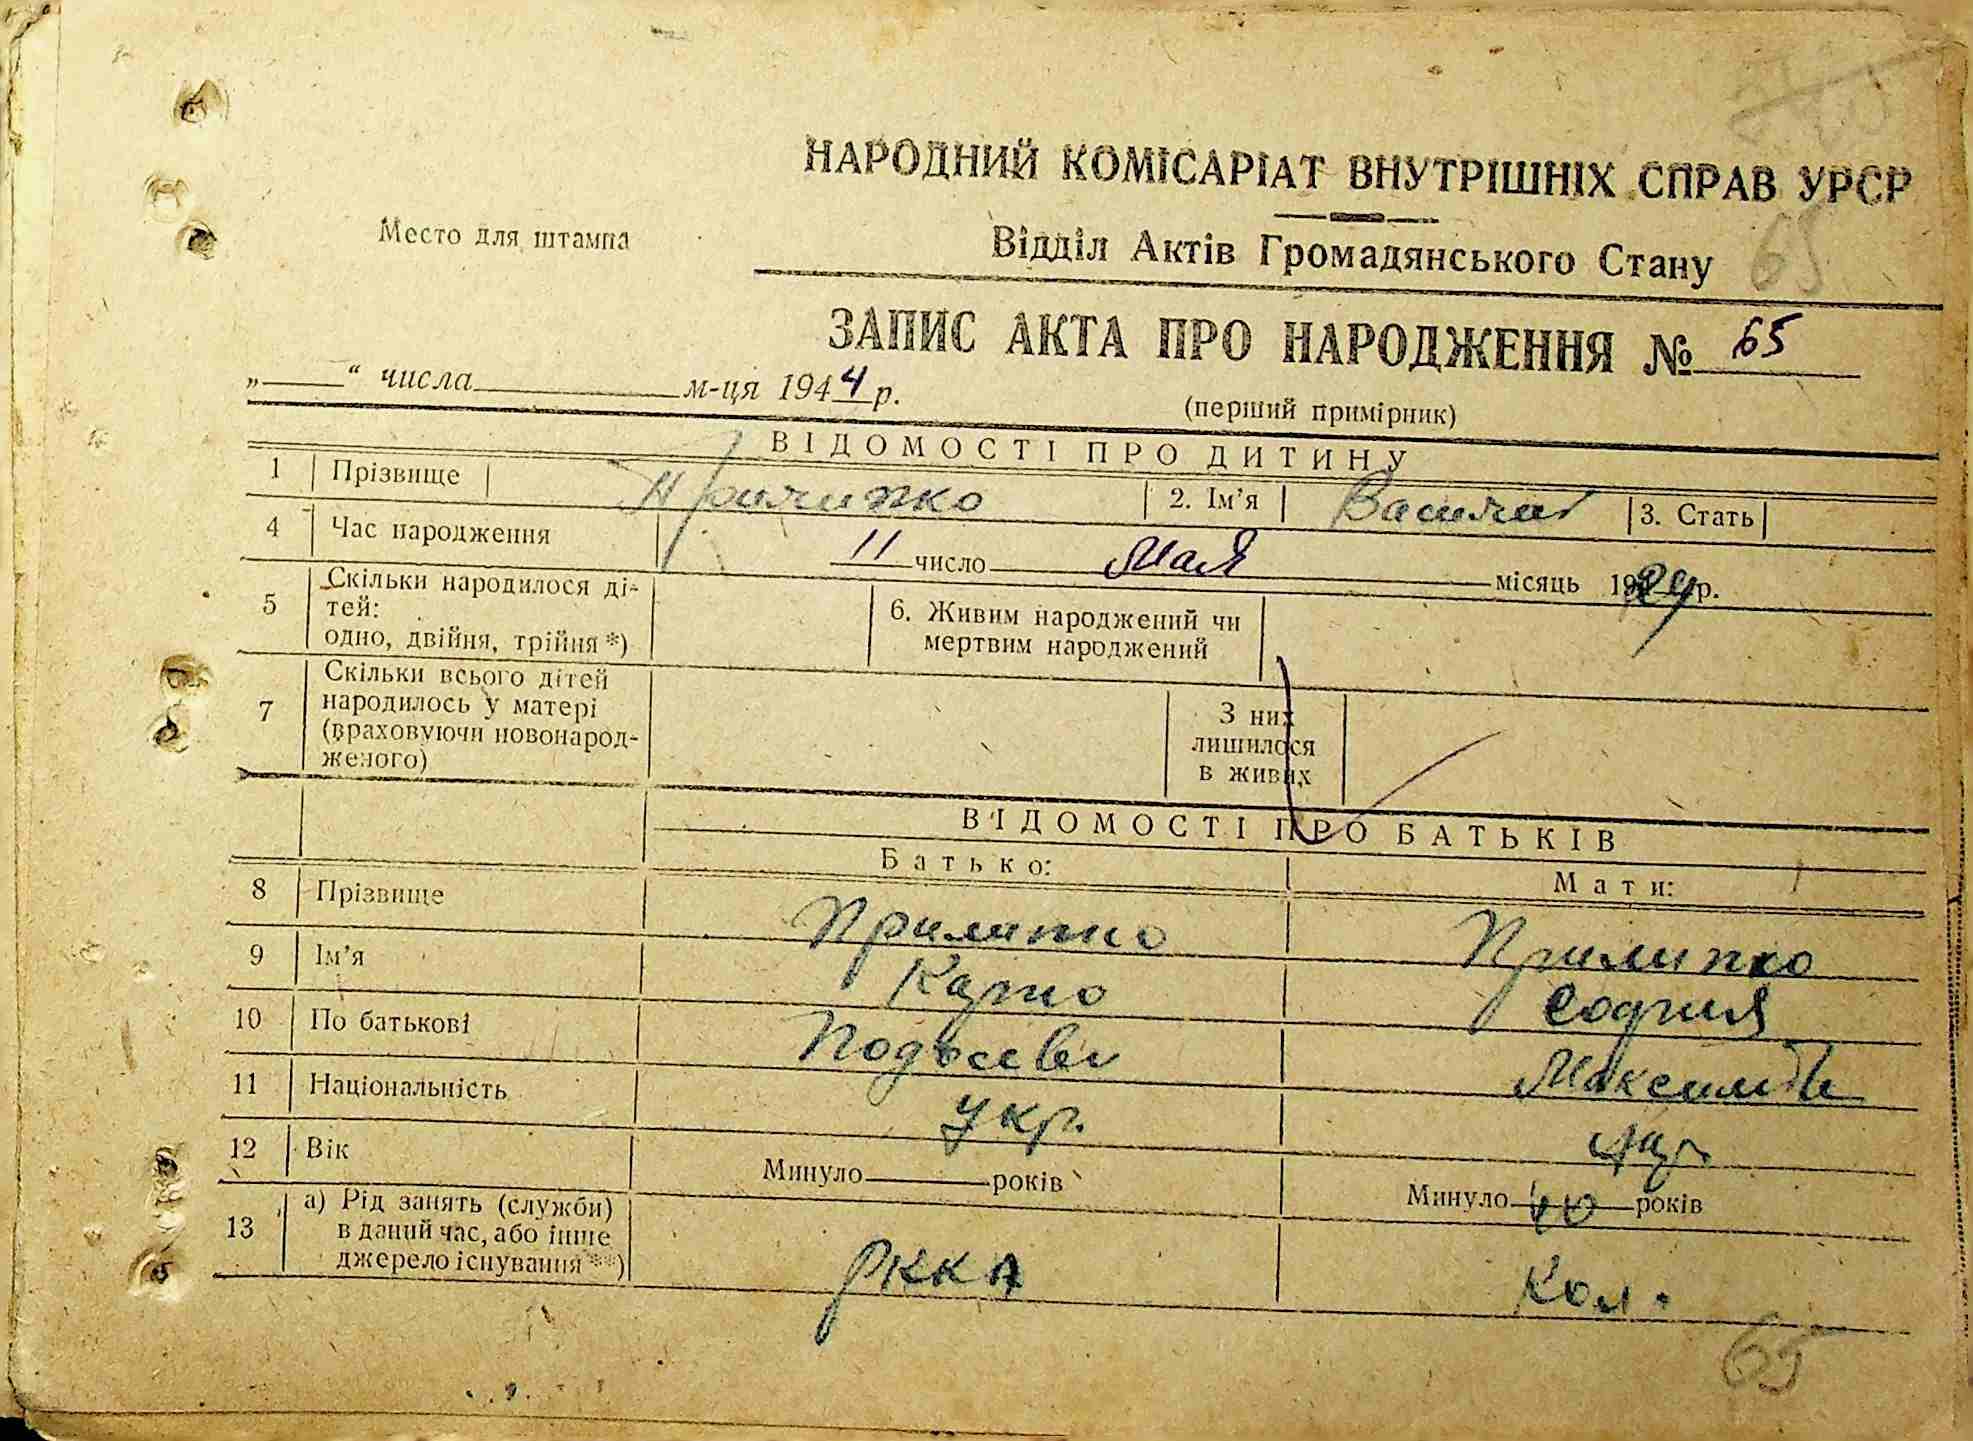 НАРОДНИЙ КОМІСАРІАТ ВНУТРІШНІХ СПРАВ УРСР
Место для штампа
Відділ Актів Громадянського Стану
65
ЗАПИС АКТА ПРО НАРОДЖЕННЯ № 65
„ “ числа м-ця 1944 р.
(перший примірник)
ВІДОМОСТІ ПРО ДИТИНУ
1 Прізвище Прилипко 2. Ім'я Василий 3. Стать
4 Час народження 11 число мая місяць 1924 р.
5 Скільки народилося ді-
тей:
одно, двійня, трійня *)
6. Живим народжений чи
мертвим народжений
7 Скільки всього дітей
народилось у матері
(враховуючи новонарод-
женого)
З них
лишилося
в живих
ВІДОМОСТІ ПРО БАТЬКІВ
Батько: Мати:
8 Прізвище Прилипко Прилипко
9 Ім'я Карпо София
10 По батькові Максим
11 Національність Укр. Укр.
12 Вік Минуло років Минуло 40 років
13 а) Рід занять (служби)
в даний час, або інше
джерело існування **)
РККА Кол.
65